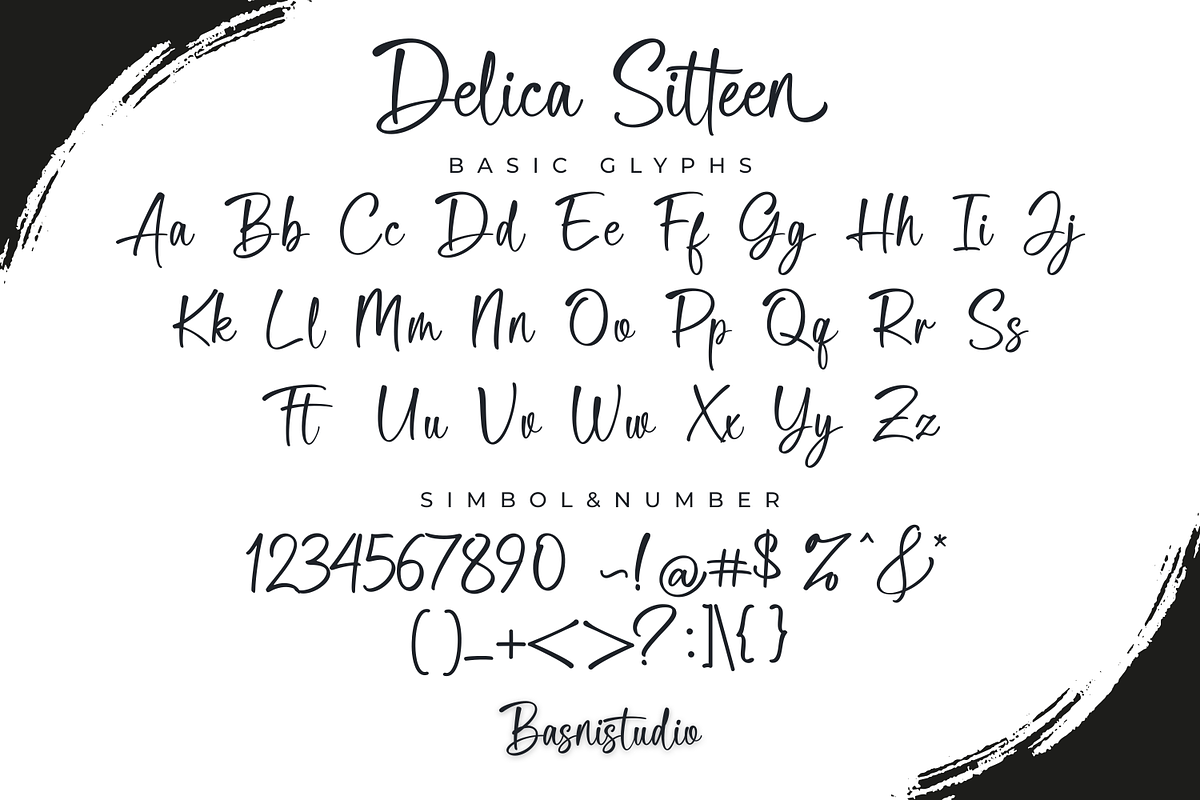 Delica Sitteen
BASIC GLYPHS
Aa Bb Cc Dd Ee Ff Gg Hh Ii Jj
Kk Ll Mm Nn Oo Pp Qq Rr Ss
Tt Uu Vv Ww Xx Yy Zz
SIMBOL&NUMBER
1234567890 ~!@#$ %^&*
()_+<>?:]\{}
Basnistudio